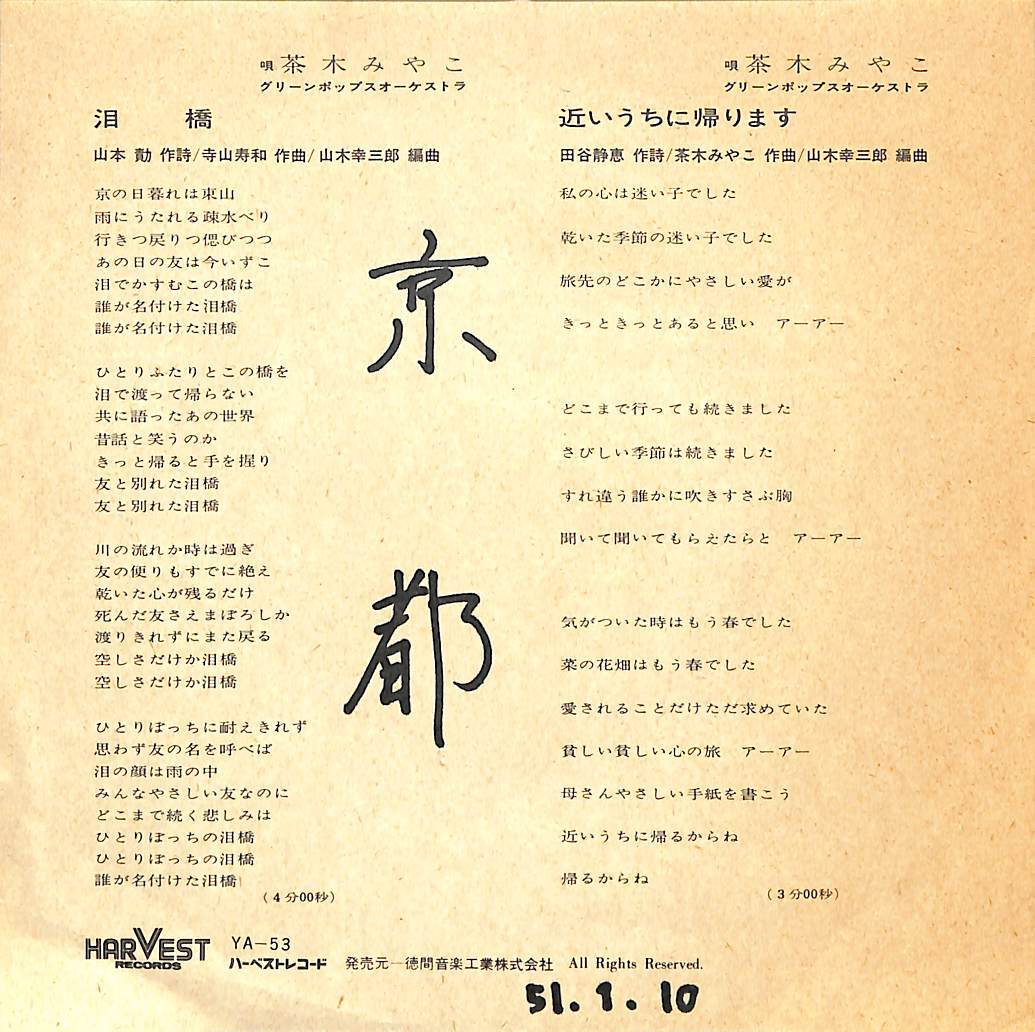 唄 茶木みやこ
グリーンポップスオーケストラ
泪橋
山本 勣 作詩/寺山寿和 作曲/山木幸三郎 編曲
京の日暮れは東山
雨にうたれる疎水べり
行きつ戻りつ偲びつつ
あの日の友は今いずこ
泪でかすむこの橋は
誰が名付けた泪橋
誰が名付けた泪橋
ひとりふたりとこの橋を
泪で渡って帰らない
共に語ったあの世界
昔話と笑うのか
きっと帰ると手を握り
友と別れた泪橋
友と別れた泪橋
川の流れか時は過ぎ
友の便りもすでに絶え
乾いた心が残るだけ
死んだ友さえまぼろしか
渡りきれずにまた戻る
空しさだけか泪橋
空しさだけか泪橋
ひとりぼっちに耐えきれず
思わず友の名を呼べば
泪の顔は雨の中
みんなやさしい友なのに
どこまで続く悲しみは
ひとりぼっちの泪橋
ひとりぼっちの泪橋
誰が名付けた泪橋
(4分00秒)
京都
唄 茶木みやこ
グリーンポップスオーケストラ
近いうちに帰ります
田谷静恵 作詩/茶木みやこ 作曲/山木幸三郎 編曲
私の心は迷い子でした
乾いた季節の迷い子でした
旅先のどこかにやさしい愛が
きっときっとあると思い アーアー
どこまで行っても続きました
さびしい季節は続きました
すれ違う誰かに吹きすさぶ胸
聞いて聞いてもらえたらと アーアー
気がついた時はもう春でした
菜の花畑はもう春でした
愛されることだけただ求めていた
貧しい貧しい心の旅 アーアー
母さんやさしい手紙を書こう
近いうちに帰るからね
帰るからね
(3分00秒)
HARVEST RECORDS
YA-53
ハーベストレコード 発売元—徳間音楽工業株式会社 All Rights Reserved.
51.1.10